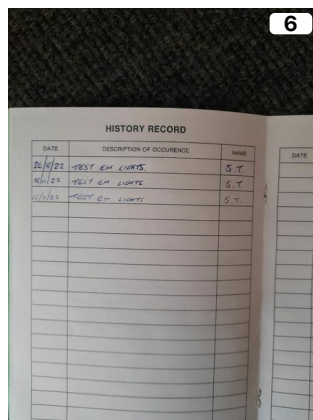 6
HISTORY RECORD
DATE DESCRIPTION OF OCCURENCE NAME DATE
26/5/22 TEST EM LIGHTS S.T.
TEST EM LIGHTS S.T.
TEST EM LIGHTS S.T.